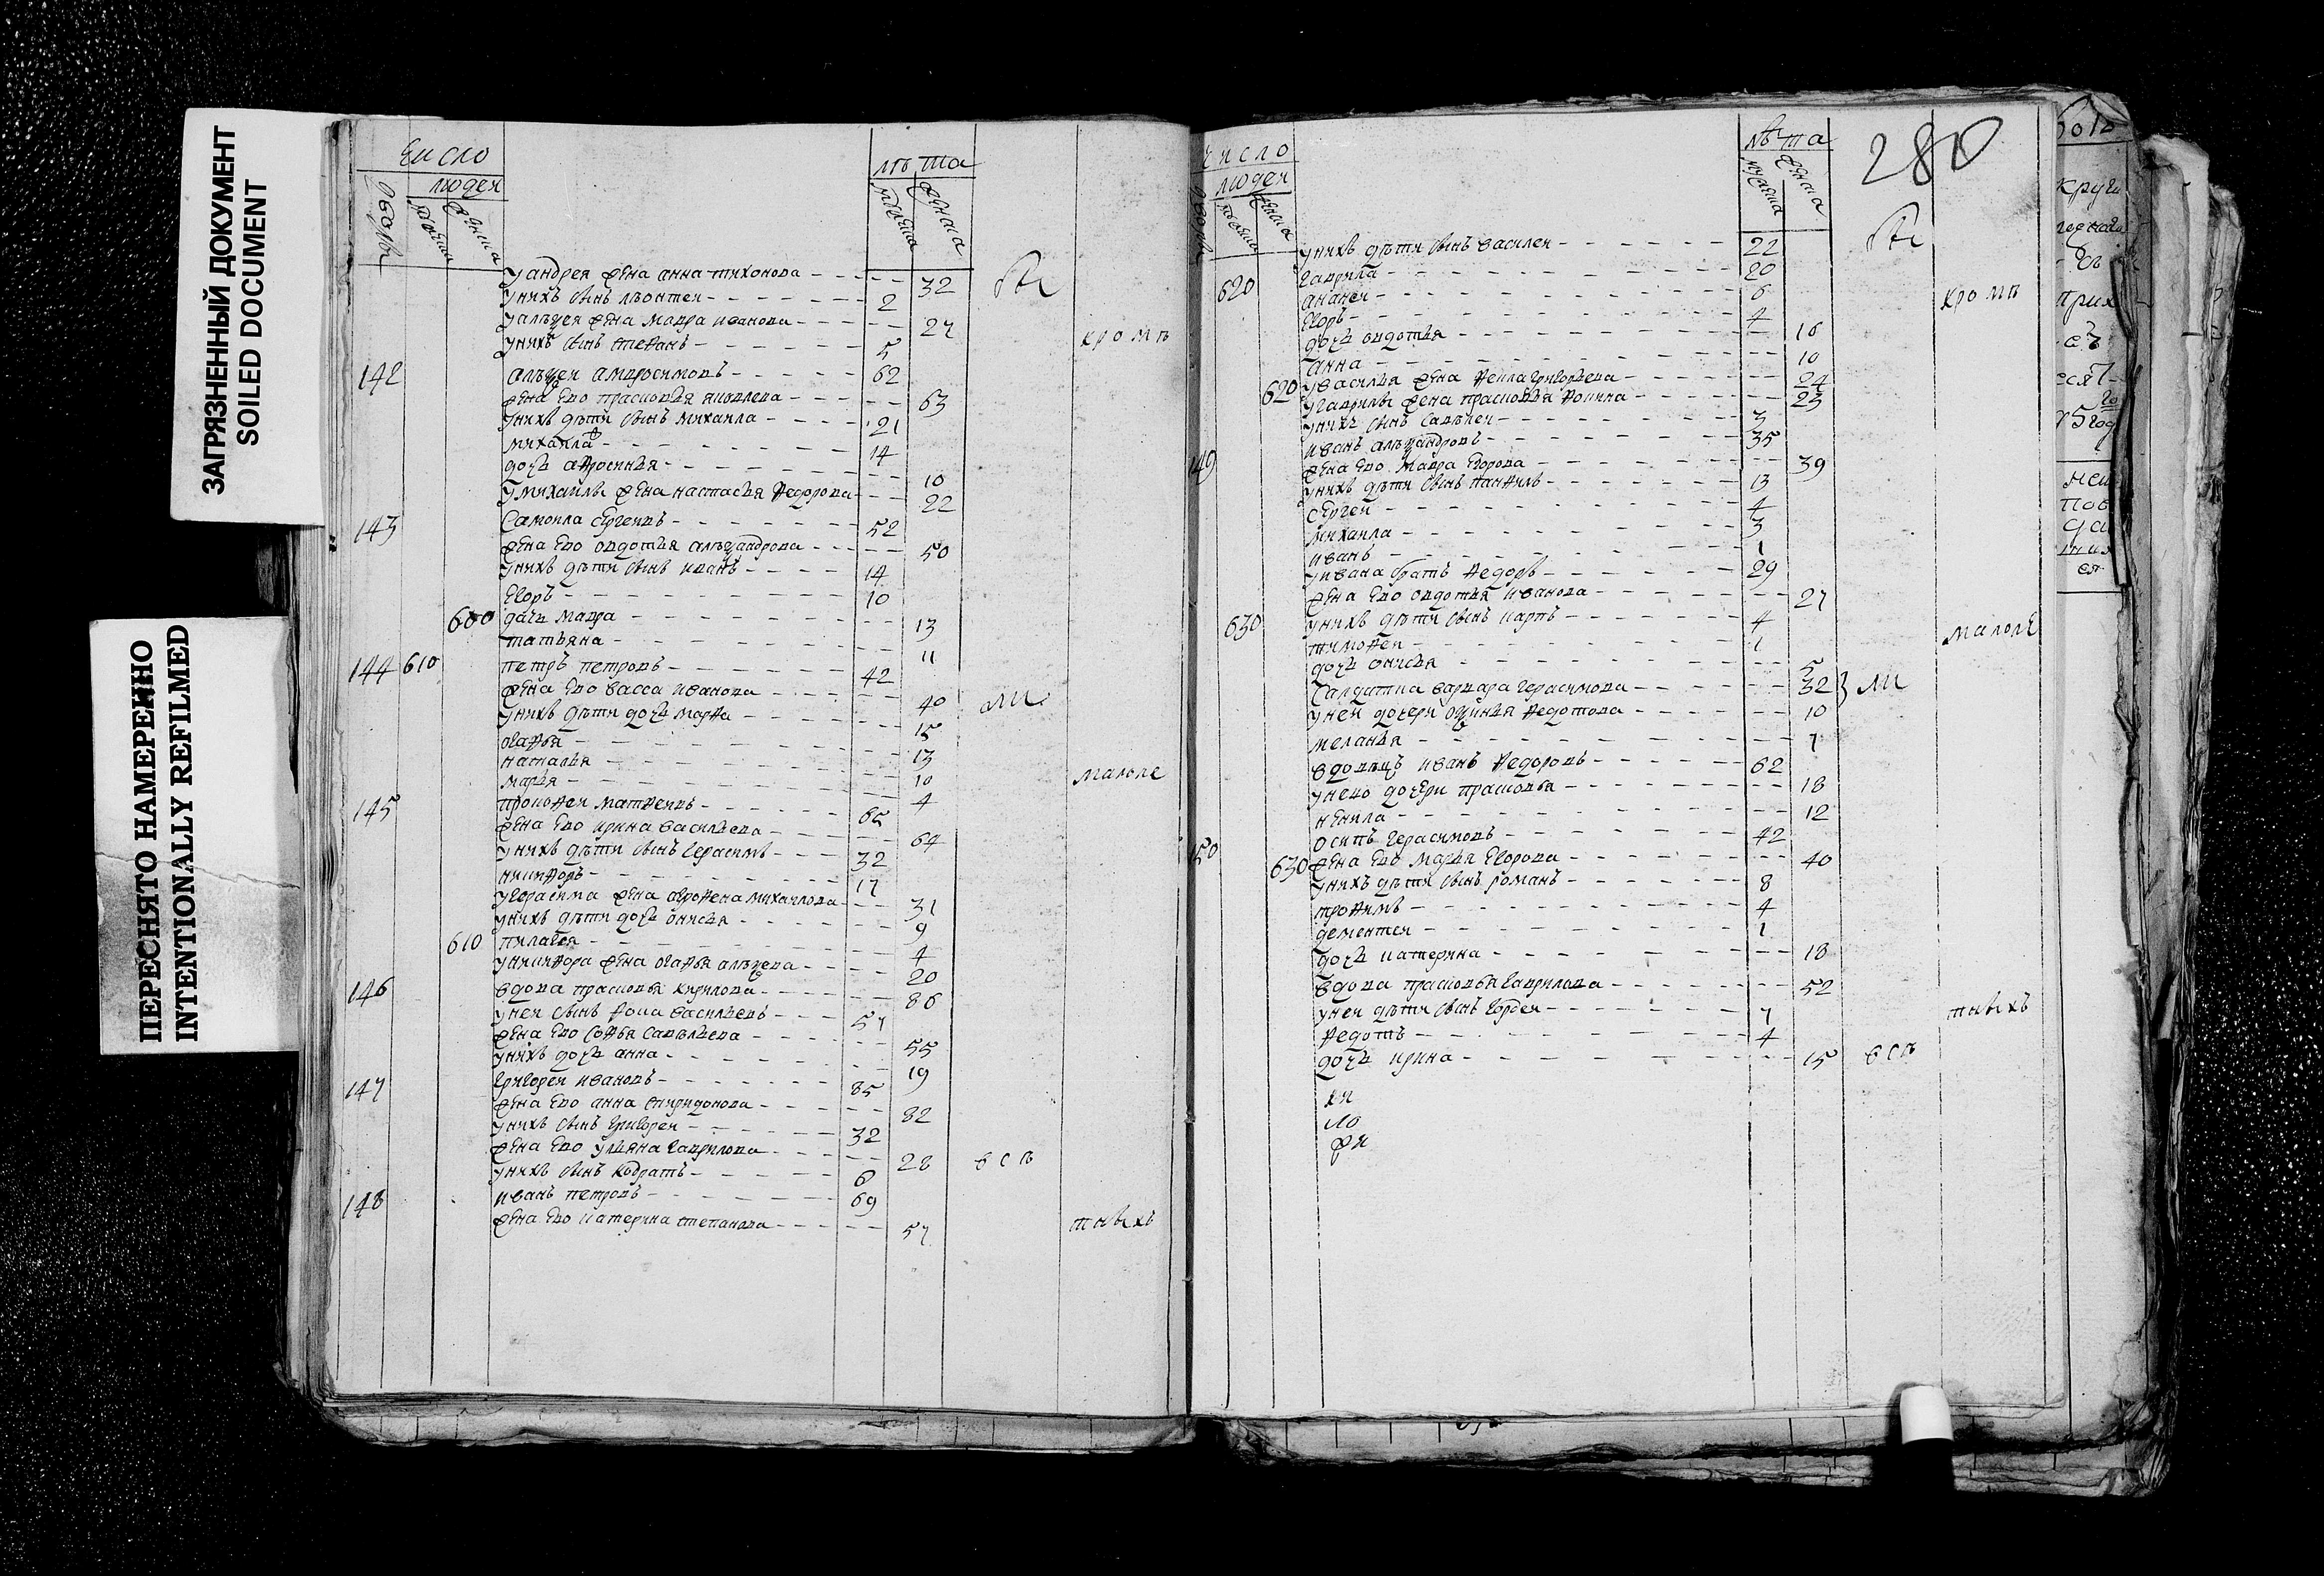 ЗАГРЯЗНЕННЫЙ ДОКУМЕНТ
SOILED DOCUMENT
ПЕРЕСНЯТО НАМЕРЕННО
INTENTIONALLY REFILMED
число
людей
лѣта
женска
у андрея жена анна тихонова 32
бы
у нихъ сынъ леонтеи 2
у алѣѯея жена мавра иванова 27
у нихъ сынъ степанъ 5
кромѣ
142 алѣѯеи амвросимовъ 62
жена ево прасковья яковлева 63
у нихъ дѣти сынъ михаила 21
михаила 14
дочь афросинья 10
у михаилы жена настасья федорова 22
143 самоила сергеевъ 52
жена ево овдотья алѣѯандрова 50
у нихъ дѣти сынъ иванъ 14
егоръ 10
600 дочь мавра 13
татьяна 11
144 610 петръ петровъ 42
жена ево васса иванова 40
ли
у нихъ дѣти дочь марфа 15
огафья 13
наталья 10
марья 4
малоле
145 прокофеи матвеевъ 65
жена ево ирина васильева 64
у нихъ дѣти сынъ герасимъ 32
никифоръ 17
у герасима жена огрофена михаилова 31
у нихъ дѣти дочь онисья 9
610 пилагея 4
у никифора жена огафья алѣѯева 20
146 вдова прасковья кирилова 86
у неи сынъ фока васильевъ 57
жена ево софья савельева 55
у нихъ дочь анна 19
147 григореи ивановъ 85
жена ево анна спиридонова 82
у нихъ сынъ григореи 32
жена ево ульяна гаврилова 28
всѣ
у нихъ сынъ кодратъ 6
148 иванъ петровъ 69
жена ево катерина степанова 57
тныхъ
280
число
людей
лѣта
женска
у нихъ дѣти сынъ василеи 22
бы
620 гаврила 20
ананеи 6
кромѣ
егоръ 4
дочь овдотья 16
анна 10
620 у василья жена некила григорьева 24
у гаврилы жена прасковья фокина 23
у нихъ сынъ савелеи 3
149 иванъ алѣѯандровъ 35
жена ево мавра егорова 39
у нихъ дѣти сынъ панфилъ 13
сергеи 4
михаила 3
иванъ 1
у ивана братъ федоръ 29
жена ево овдотья иванова 27
630 у нихъ дѣти сынъ карпъ 4
малоле
тимофеи 1
дочь онисья 5
салдатка варвара герасимова 32 ли
у неи дочери оѯинья федотова 10
меланья 7
вдовецъ иванъ федоровъ 62
у нево дочери прасковья 18
ненила 12
150 осипъ герасимовъ 42
630 жена ево марья егорова 40
у нихъ дѣти сынъ романъ 8
трофимъ 4
дементеи 1
дочь катерина 18
вдова прасковья гаврилова 52
у неи дѣти сынъ гордеи 7
тныхъ
федотъ 4
дочь ирина 15
всѣ